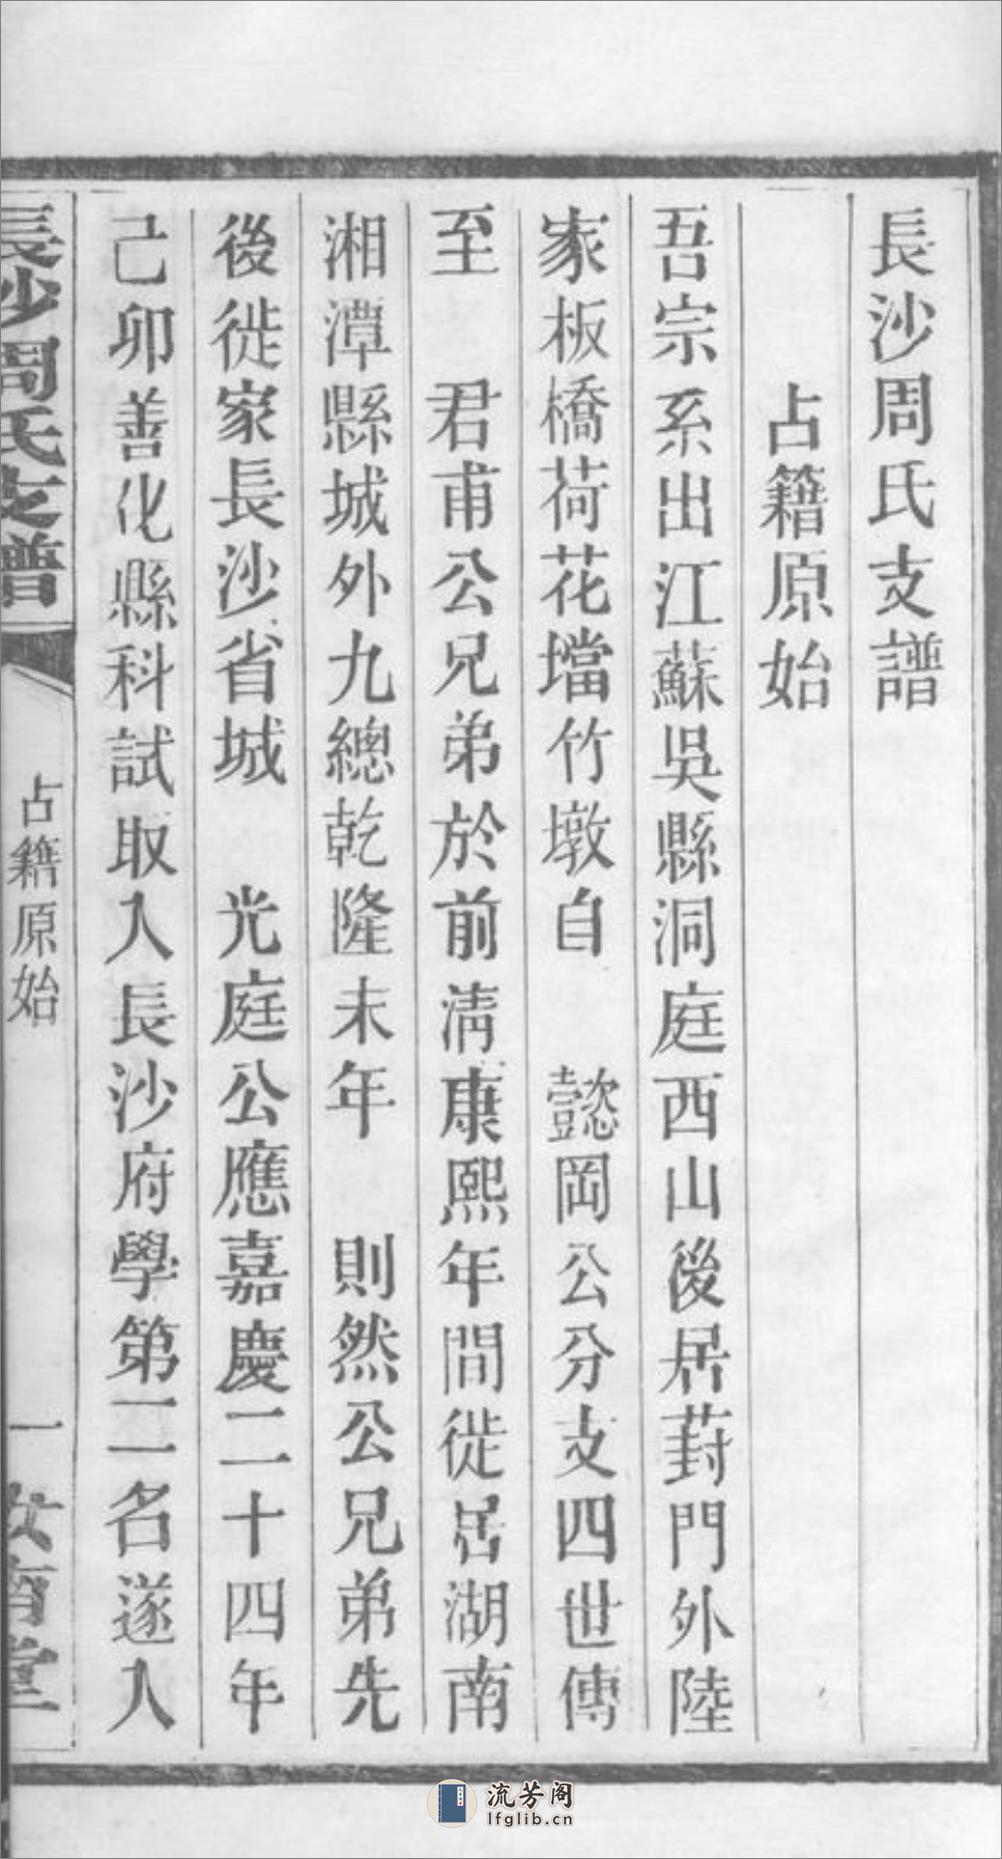 長沙周氏支譜
占籍原始
吾宗系出江蘇吳縣洞庭西山後居葑門外陸
家板橋荷花壋竹墩自　懿岡公分支四世傳
至　君甫公兄弟於前淸康熙年間徙居湖南
湘潭縣城外九總乾隆末年　則然公兄弟先
後徙家長沙省城　光庭公應嘉慶二十四年
己卯善化縣科試取入長沙府學第二名遂入
長沙周氏支譜
占籍原始
一
堂
流芳阁
lfglib.cn